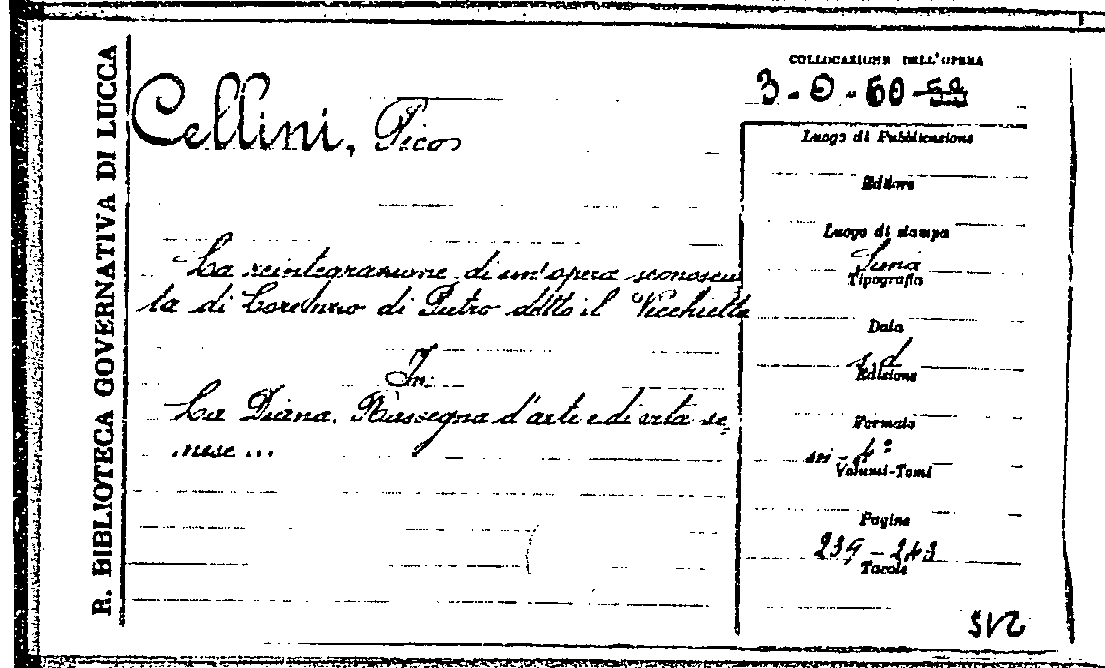 R. BIBLIOTECA GOVERNATIVA DI LUCCA
Cellini, Pico
La reintegrazione di un'opera sconosciu
ta di Lorenzo di Pietro detto il Vecchietta
In:
La Diana. Rassegna d'arte e di vita se-
nese...
COLLOCAZIONE DELL'OPERA
3-0-60
Luogo di Pubblicazione
Editore
Luogo di stampa
Siena
Tipografia
Data
s.d
Edizione
Formato
in-4º
Volumi-Tomi
Pagine
239-243
Tavole